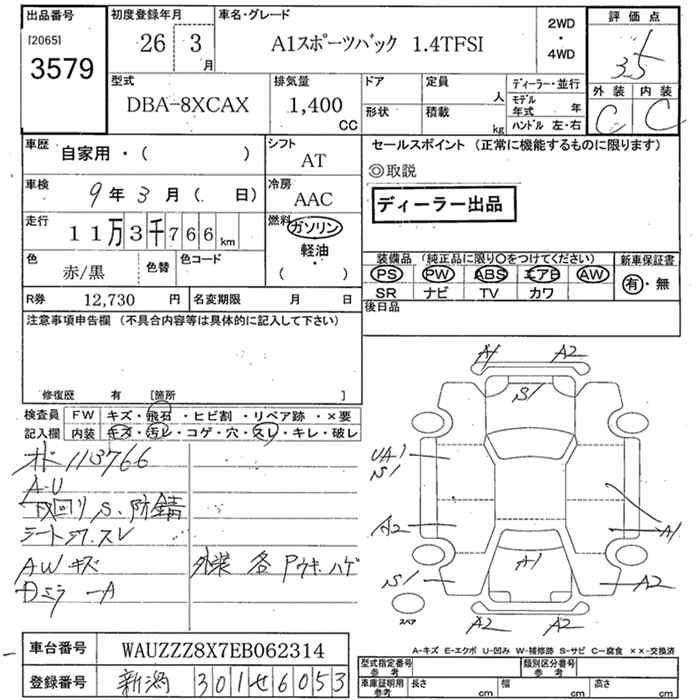 出品番号
[2065]
3579
初度登録年月
26 3月
車名・グレード
A1スポーツバック 1.4TFSI
2WD
・
4WD
評価点
3.5
外装 内装
C C
型式
DBA-8XCAX
排気量
1,400
CC
ドア
形状
定員
人
積載
kg
ディーラー・並行
モデル年式 年
ハンドル 左・右
車歴
自家用・( )
シフト
AT
車検
9年3月( 日)
冷房
AAC
走行
11万3千766km
燃料
ガソリン
軽油
( )
色
赤/黒
色替
色コード
R券 12,730 円
名変期限 月 日
セールスポイント (正常に機能するものに限ります)
◎取説
ディーラー出品
装備品 (純正品に限り〇をつけてください)
PS PW ABS エアB AW
SR ナビ TV カワ
新車保証書
有・無
後日品
注意事項申告欄 (不具合内容等は具体的に記入して下さい)
修復歴 有 [箇所 ]
検査員
記入欄
FW キズ・飛石・ヒビ割・リペア跡・×要
内装 キズ・汚レ・コゲ・穴・スレ・キレ・破レ
オド113766
A-U
下回りS、防錆
シート汚、スレ
AWキズ
外装 各 Pウキ、ハゲ
Dミラ -A
A1 A2
S1
UA1
S1
A2
A1
S1
A1
A2
A2 A2
スペア
A-キズ E-エクボ U-凹み W-補修跡 S-サビ C-腐食 ××-交換済
車台番号 WAUZZZ8X7EB062314
登録番号 新潟 301せ6053
型式指定番号
参考
類別区分番号
参考
車庫証明用
参考
長さ cm
幅 cm
高さ cm